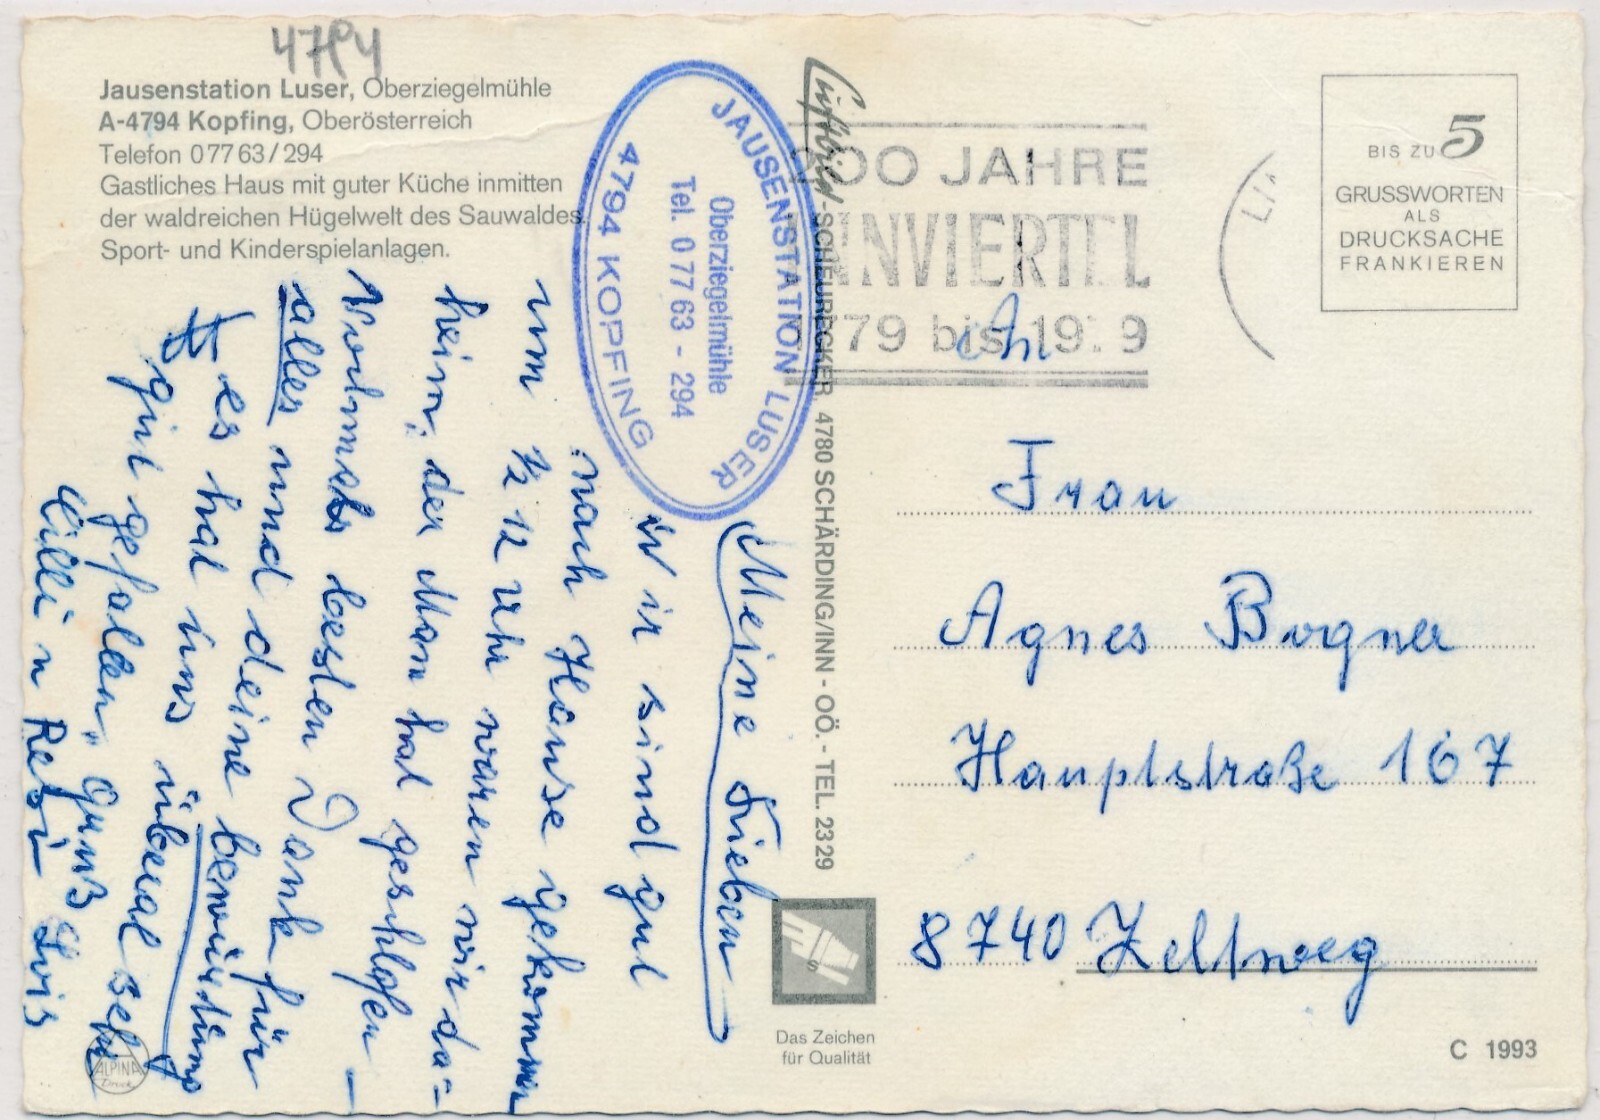 4794
Jausenstation Luser, Oberziegelmühle
A-4794 Kopfing, Oberösterreich
Telefon 0 77 63 / 294
Gastliches Haus mit guter Küche inmitten
der waldreichen Hügelwelt des Sauwaldes.
Sport- und Kinderspielanlagen.
JAUSENSTATION LUSER
Oberziegelmühle
Tel. 0 77 63 - 294
4794 KOPFING
Meine Lieben
Wir sind gut
nach Hause gekommen
um ½ 12 Uhr waren wir da=
heim, der Mann hat geschlafen –
Nochmals besten Dank für
alles und deine bewirtung
es hat uns überall sehr
gut gefallen, Gruß Luis
Cilli u Resi
Luftbild-SCHEURECKER, 4780 SCHÄRDING/INN - OÖ. - TEL. 2329
200 JAHRE
INNVIERTEL
1779 bis 1979
BIS ZU 5
GRUSSWORTEN
ALS
DRUCKSACHE
FRANKIEREN
An
Frau
Agnes Bogner
Hauptstraße 167
8740 Zeltweg
Das Zeichen
für Qualität
C 1993
ALPINA
Druck